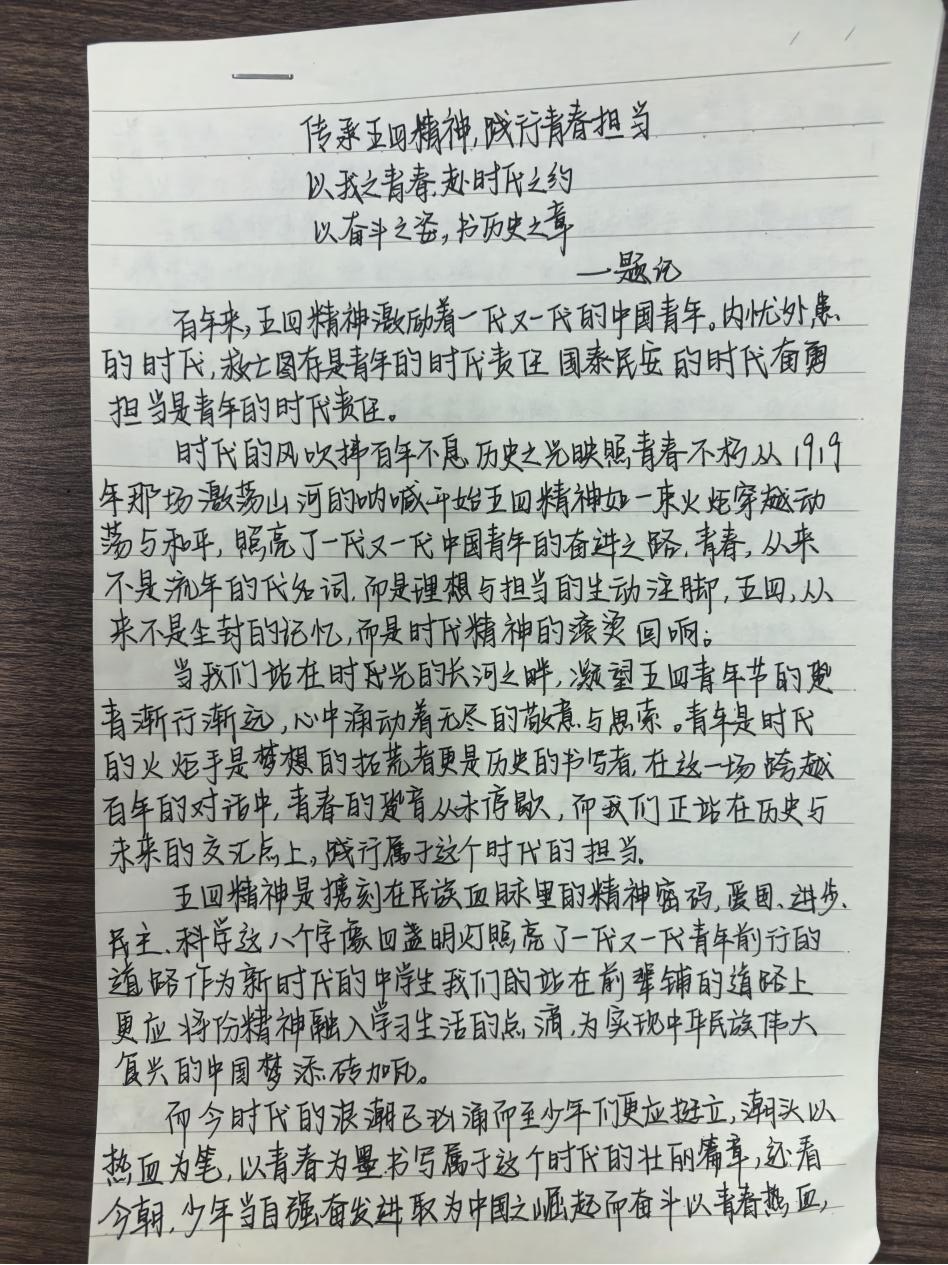 传承五四精神,践行青春担当
以我之青春,赴时代之约
以奋斗之姿,书历史之章
一题记
百年来,五四精神激励着一代又一代的中国青年。内忧外患
的时代,救亡图存是青年的时代责任 国泰民安 的时代奋勇
担当是青年的时代责任。
时代的风吹拂百年不息 历史之光映照青春不朽 从 1919
年那场激荡山河的呐喊开始五四精神如一束火炬穿越动
荡与和平,照亮了一代又一代中国青年的奋进之路,青春,从来
不是流年的代名词,而是理想与担当的生动注脚,五四,从
来不是尘封的记忆,而是时代精神的滚烫回响。
当我们站在时代光的长河之畔,凝望五四青年节的跫
音渐行渐远,心中涌动着无尽的敬意与思索。青年是时代
的火炬手是梦想的拓荒者更是历史的书写者,在这一场跨越
百年的对话中,青春的跫音从未停歇,而我们正站在历史与
未来的交汇点上,践行属于这个时代的担当.
五四精神是镌刻在民族血脉里的精神密码,爱国、进步、
民主、科学这八个字像四盏明灯照亮了一代又一代青年前行的
道路作为新时代的中学生我们的站在前辈铺的道路上
更应将份精神融入学习生活的点滴,为实现中华民族伟大
复兴的中国梦添砖加瓦。
而今时代的浪潮已汹涌而至少年们更应挺立,潮头以
热血为笔,以青春为墨书写属于这个时代的壮丽篇章,还看
今朝,少年当自强奋发进取为中国之崛起而奋斗以青春热血,